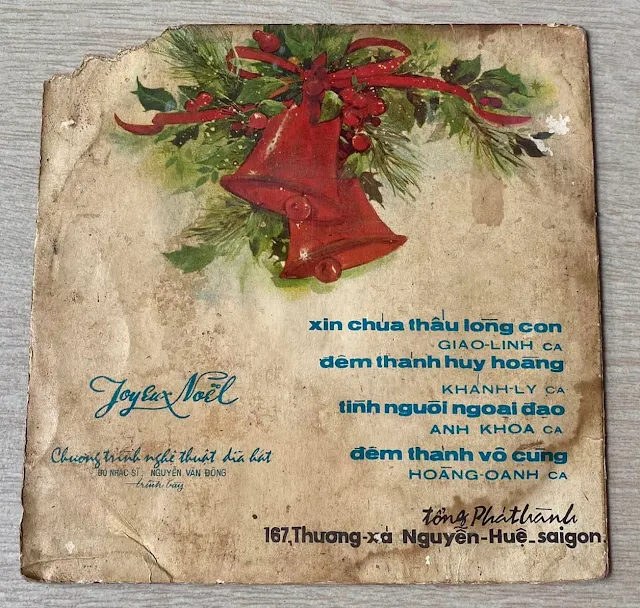 xin chúa thấu lòng con
GIAO-LINH CA
đêm thánh huy hoàng
KHÁNH-LY CA
tình người ngoại đạo
ANH KHOA CA
đêm thánh vô cùng
HOÀNG-OANH CA
Joyeux Noël
Chương trình nghệ thuật dĩa hát
DO NHẠC SĨ : NGUYỄN VĂN ĐÔNG
trình bày
tổng Phát hành
167, Thương-xá Nguyễn-Huệ_saigon.